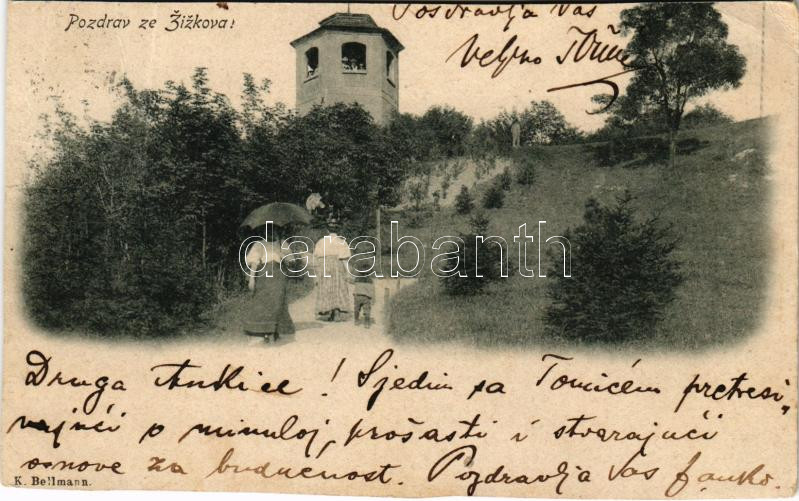 Pozdrav ze Žižkova!
Pozdravlja Vas
Veljko
darabanth
Druga Ankice! Sjedim sa Tomićem pretresi-
vajući o minuloj, prošasti i stvarajući
osnove za budućnost. Pozdravlja Vas Janko.
K. Bellmann.